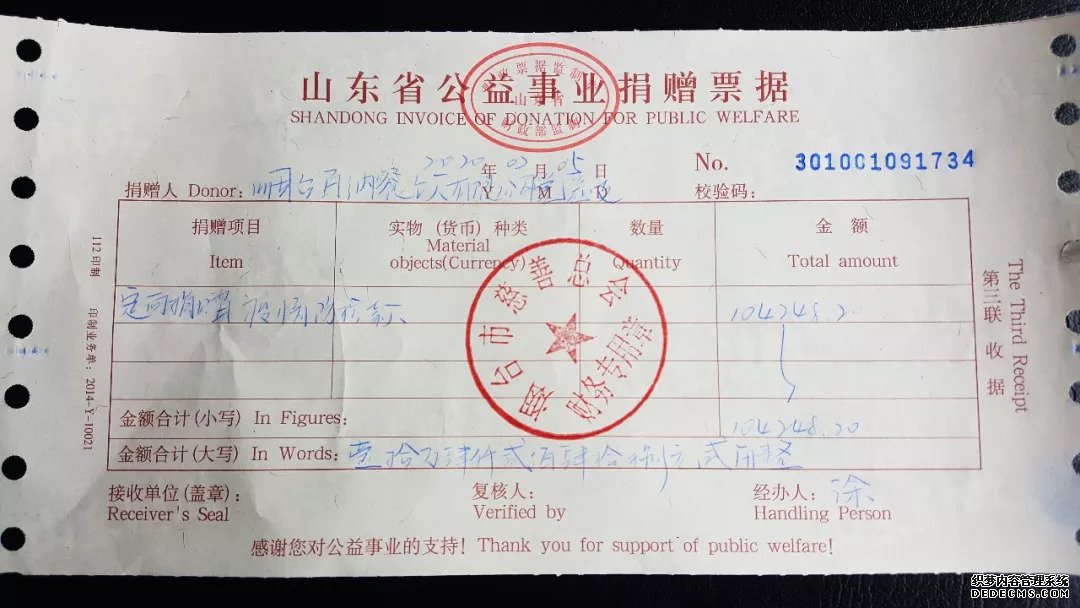 山东省公益事业捐赠票据
SHANDONG INVOICE OF DONATION FOR PUBLIC WELFARE
山东省
财政部监制
2020年02月05日
Y M D
No. 301001091734
捐赠人 Donor:
校验码:
捐赠项目 实物(货币)种类 数量 金额
Item Material objects(Currency) Quantity Total amount
定向 疫情防控款 104248.20
金额合计(小写) In Figures: 104248.20
金额合计(大写) In Words: 壹拾万肆仟贰佰肆拾捌元贰角整
接收单位(盖章): 复核人: 经办人: 涂
Receiver's Seal Verified by Handling Person
感谢您对公益事业的支持! Thank you for support of public welfare!
烟台市慈善总会
财务专用章
第三联 收据
The Third Receipt
112印制 印制业务单: 2014-Y-10021
织梦内容管理系统
DEDECMS.COM